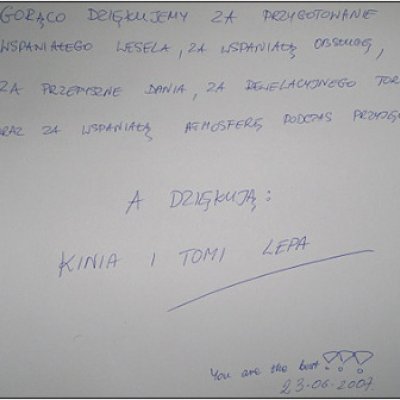 GORĄCO DZIĘKUJEMY ZA PRZYGOTOWANIE
WSPANIAŁEGO WESELA, ZA WSPANIAŁĄ OBSŁUGĘ,
ZA PRZEPYSZNE DANIA, ZA REWELACYJNEGO TOR
ORAZ ZA WSPANIAŁĄ ATMOSFERĘ PODCZAS PRZYJĘ
A DZIĘKUJĄ:
KINIA I TOMI LEPA
You are the best!!!
23-06-2007